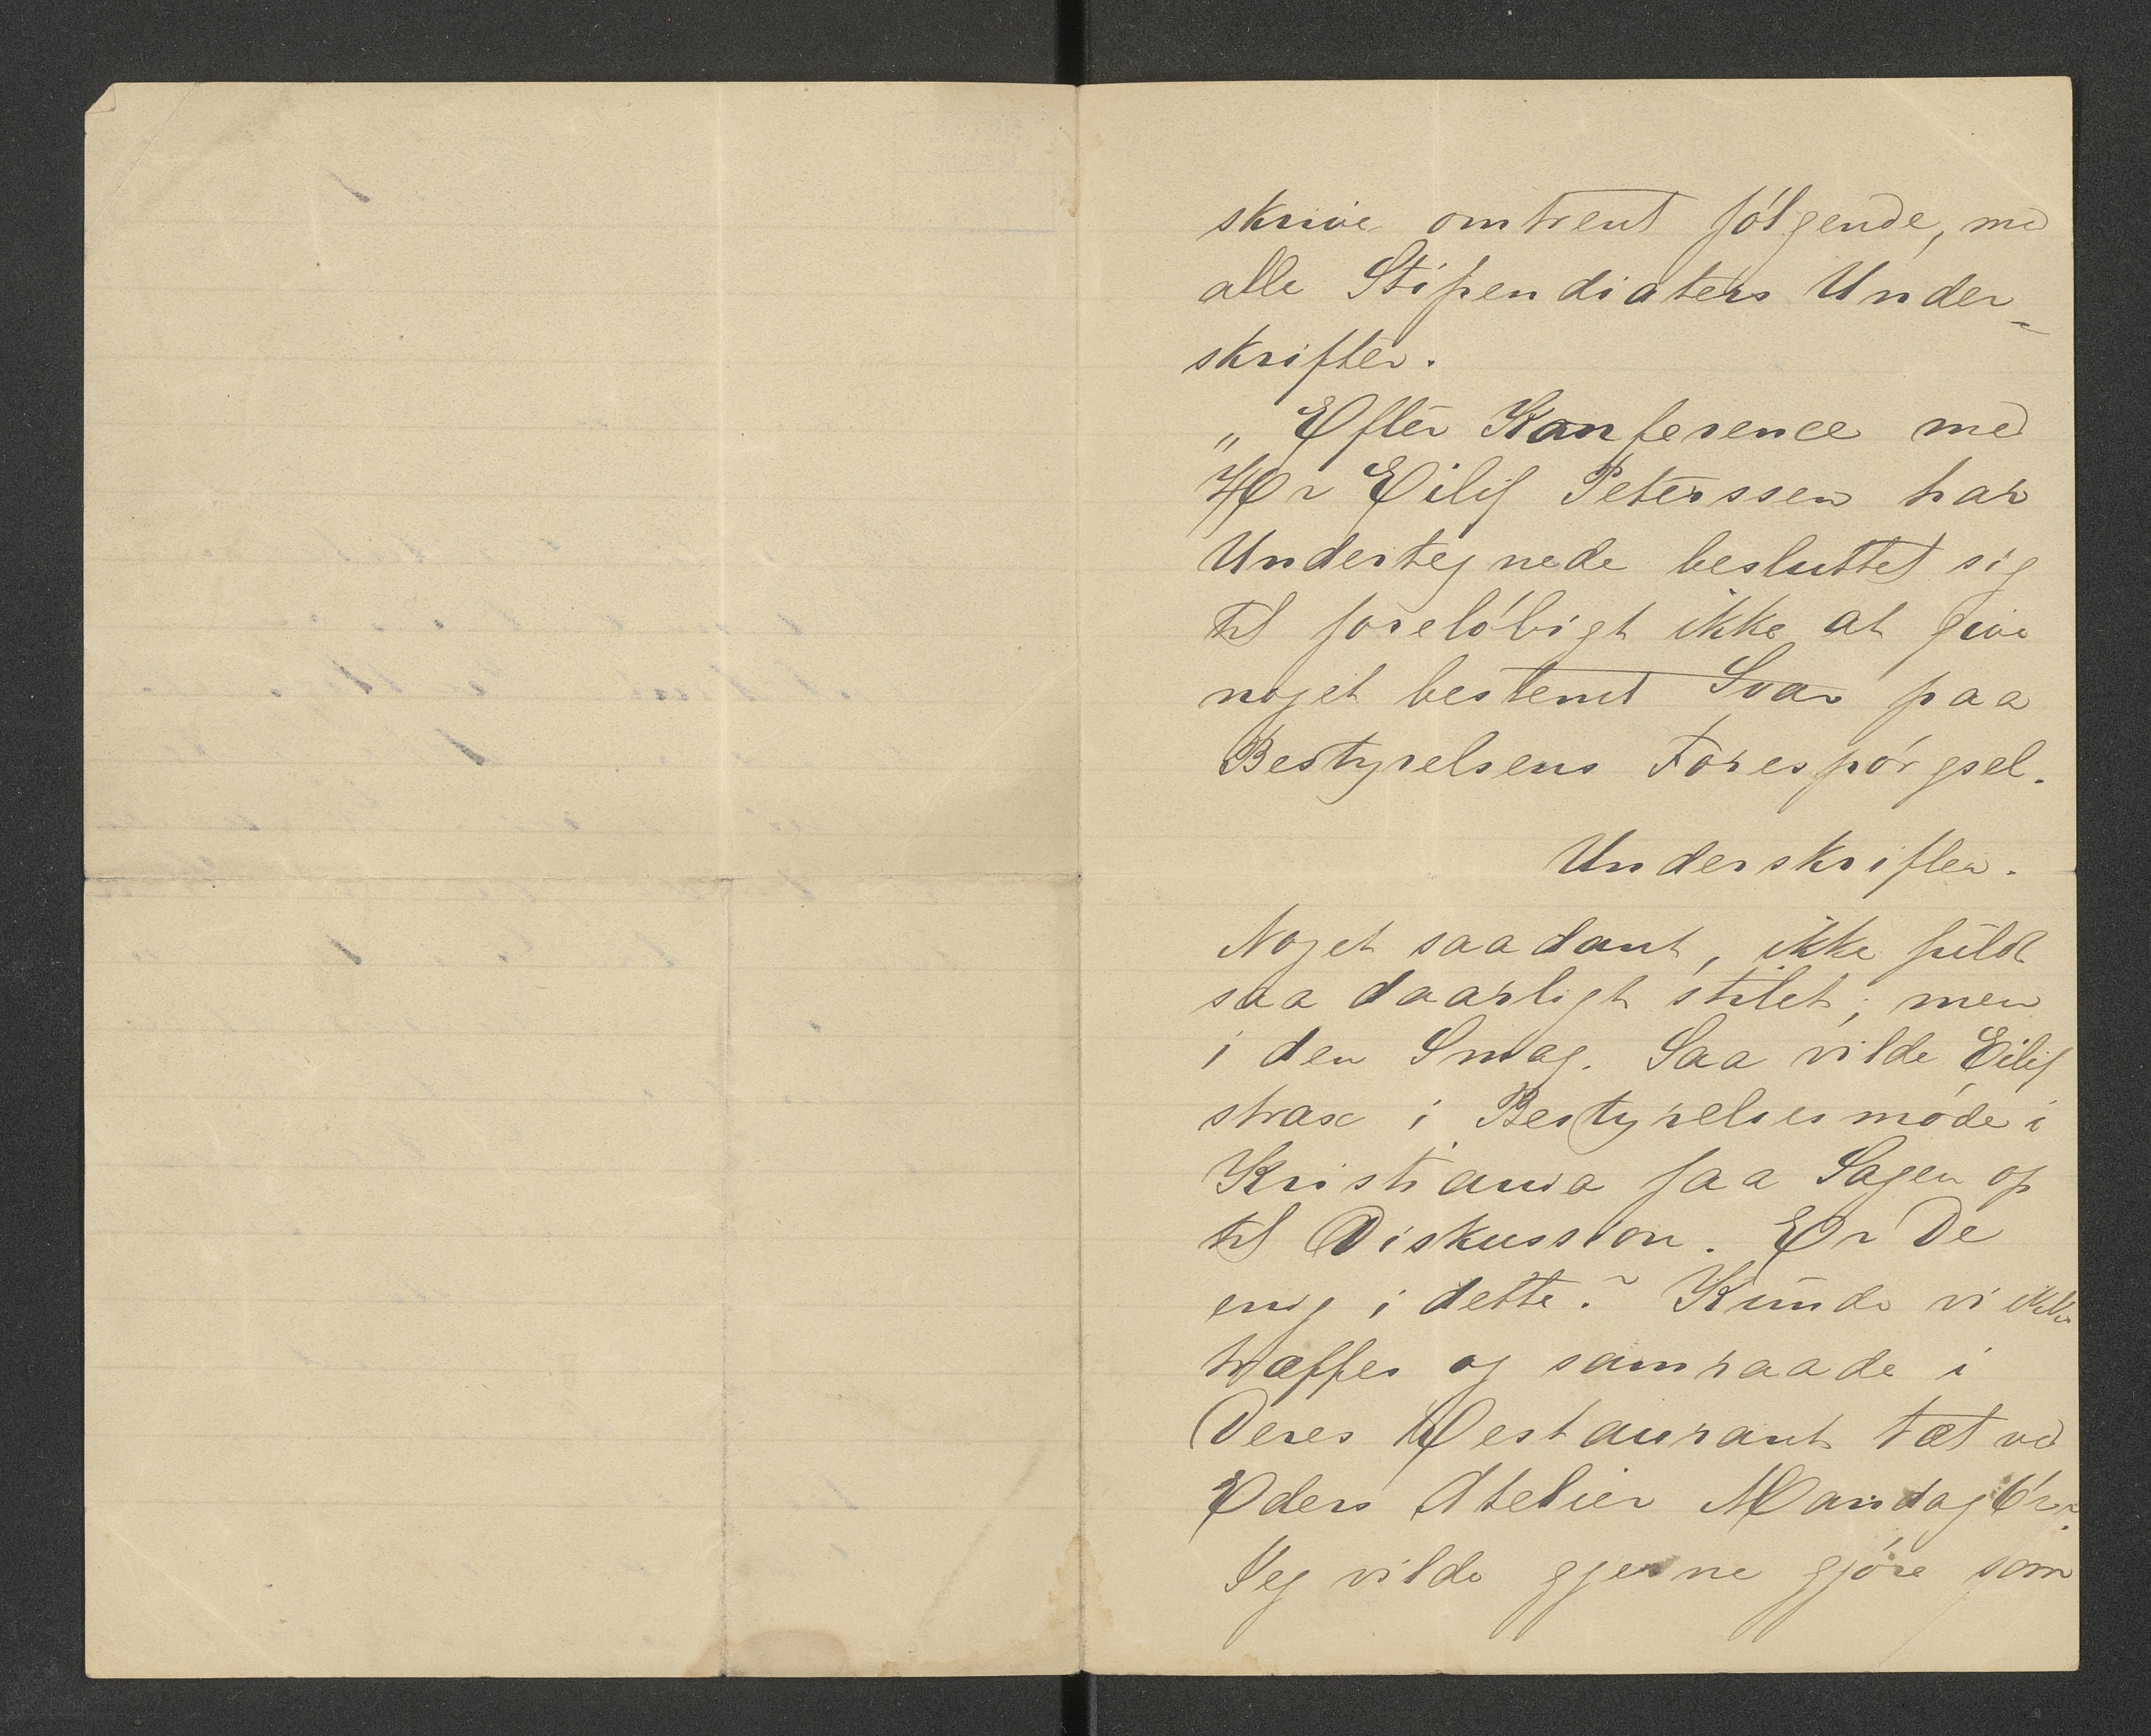 skrive omtrent følgende, med
alle Stipendiaters Under-
skrifter.
„Efter Konference med
Hr Eilif Peterssen har
Undertegnede besluttet sig
til foreløbigt ikke at give
noget bestemt Svar paa
Bestyrelsens Forespørgsel.
Underskrifter.
Noget saadant, ikke fuldt
saa daarligt stilet, men
i den Smag. Saa vilde Eilif
strax i Bestyrelsesmøde i
Kristiania faa Sagen op
til Diskussion. Er De
enig i dette? Kunde vi ikke
træffes og samraade i
Deres Restaurant tæt ved
Eders Atelier Mandag
Jeg vilde gjerne gjøre som